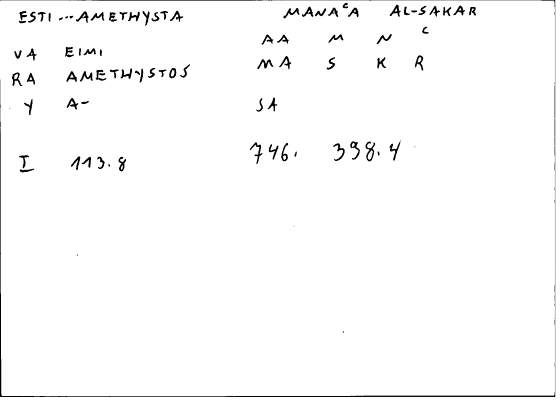 ESTI...AMETHYSTA MANAᶜA AL-SAKAR
AA M N C
VA EIMI MA S K R
RA AMETHYSTOS
Y A- SA
I 113.8 746. 398.4